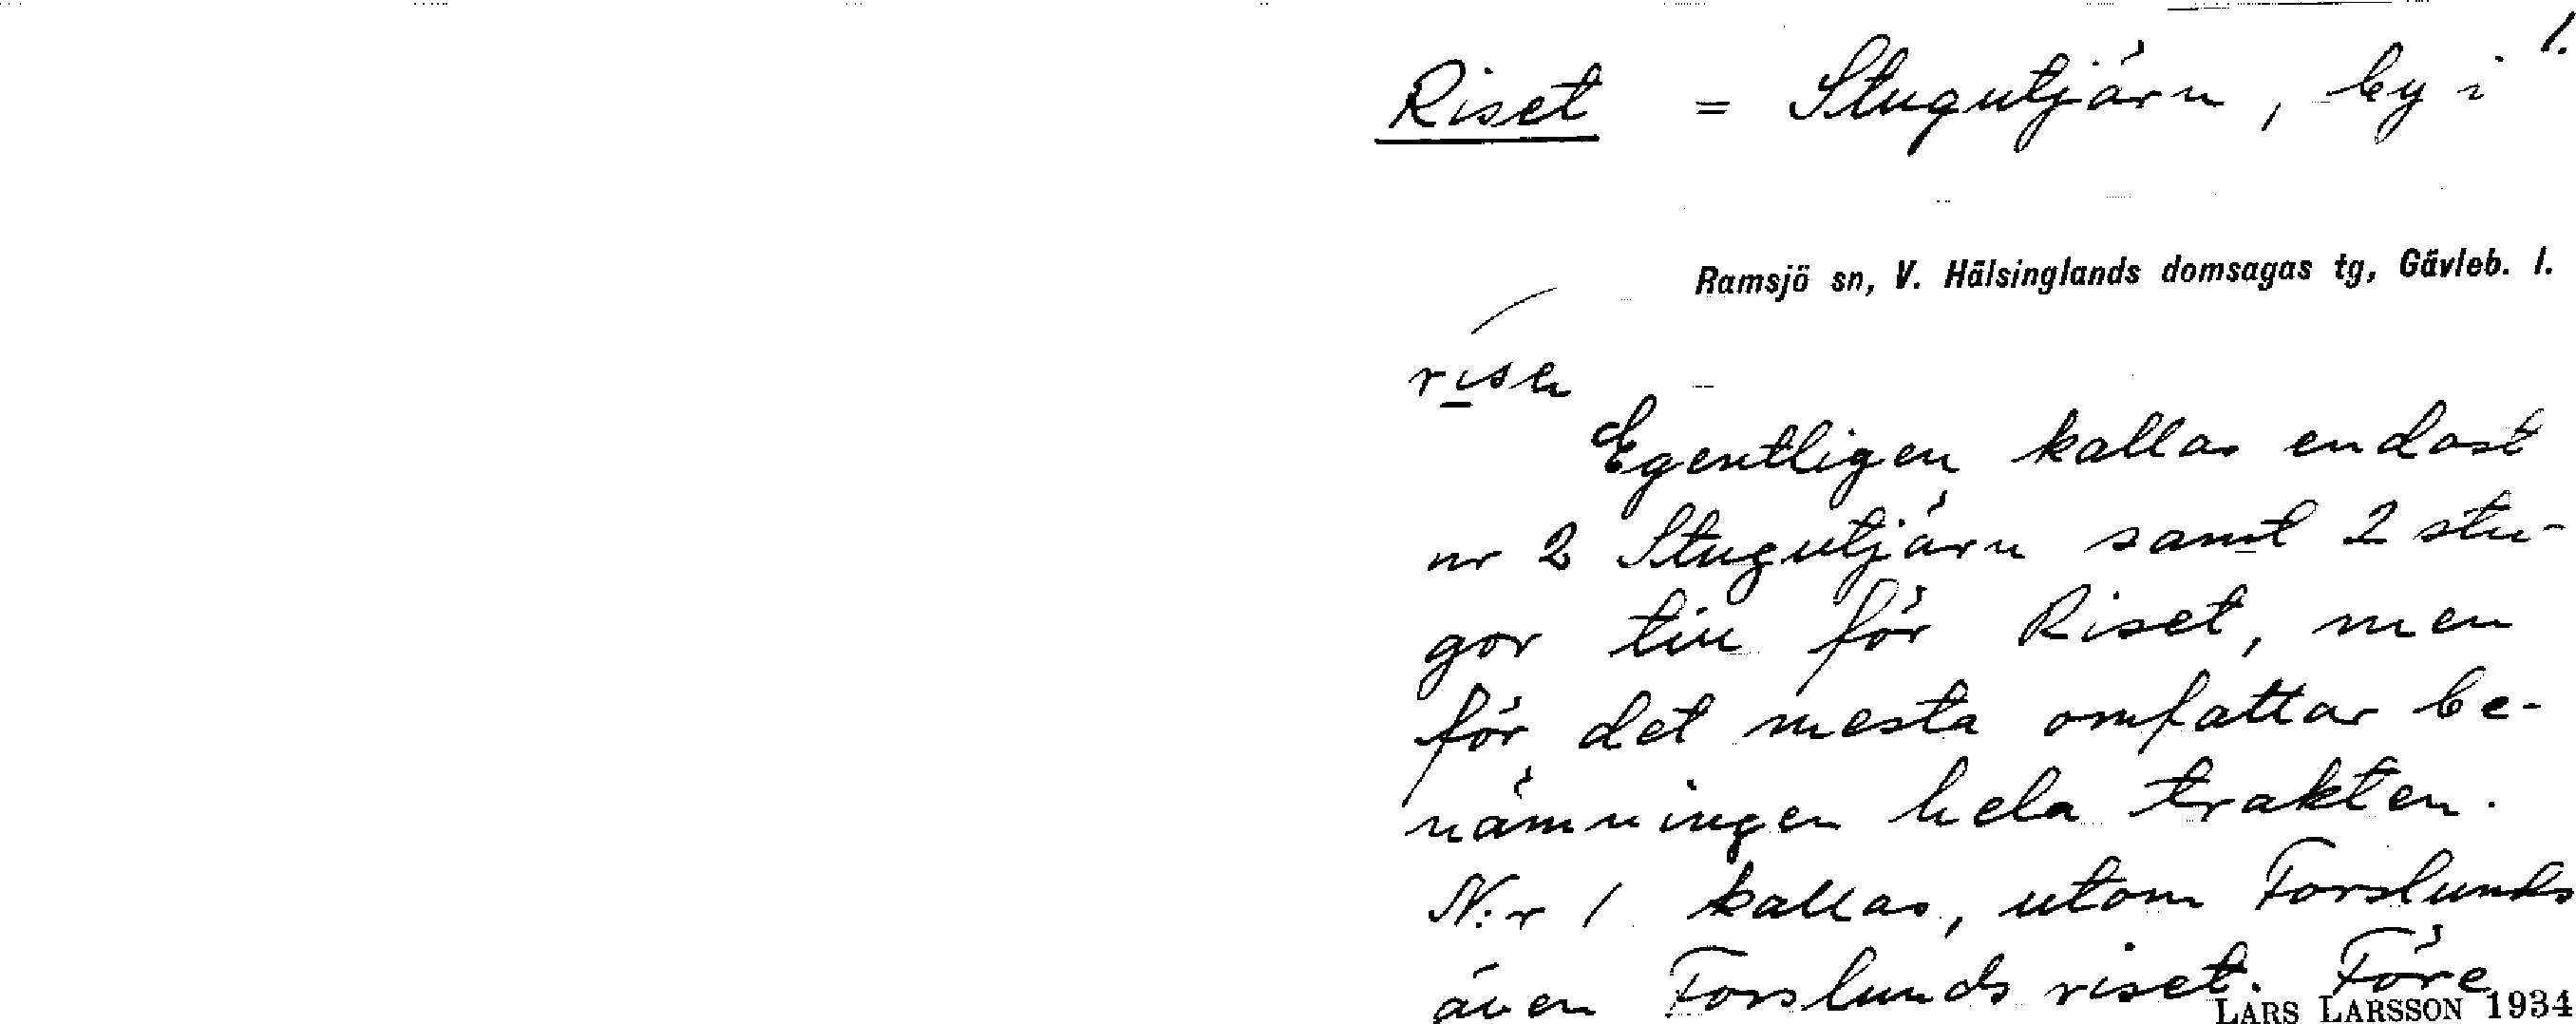 1.
Riset = Stugutjärn, by i
Ramsjö sn, V. Hälsinglands domsagas tg, Gävleb. l.
risen
Egentligen kallas endast
nr 2 Stugutjärn samt 2 stu-
gor till för Riset, men
för det mesta omfattar be-
nämningen hela trakten.
N:r 1 kallas, utom Forslunds
även Forslunds riset. Före
LARS LARSSON 1934